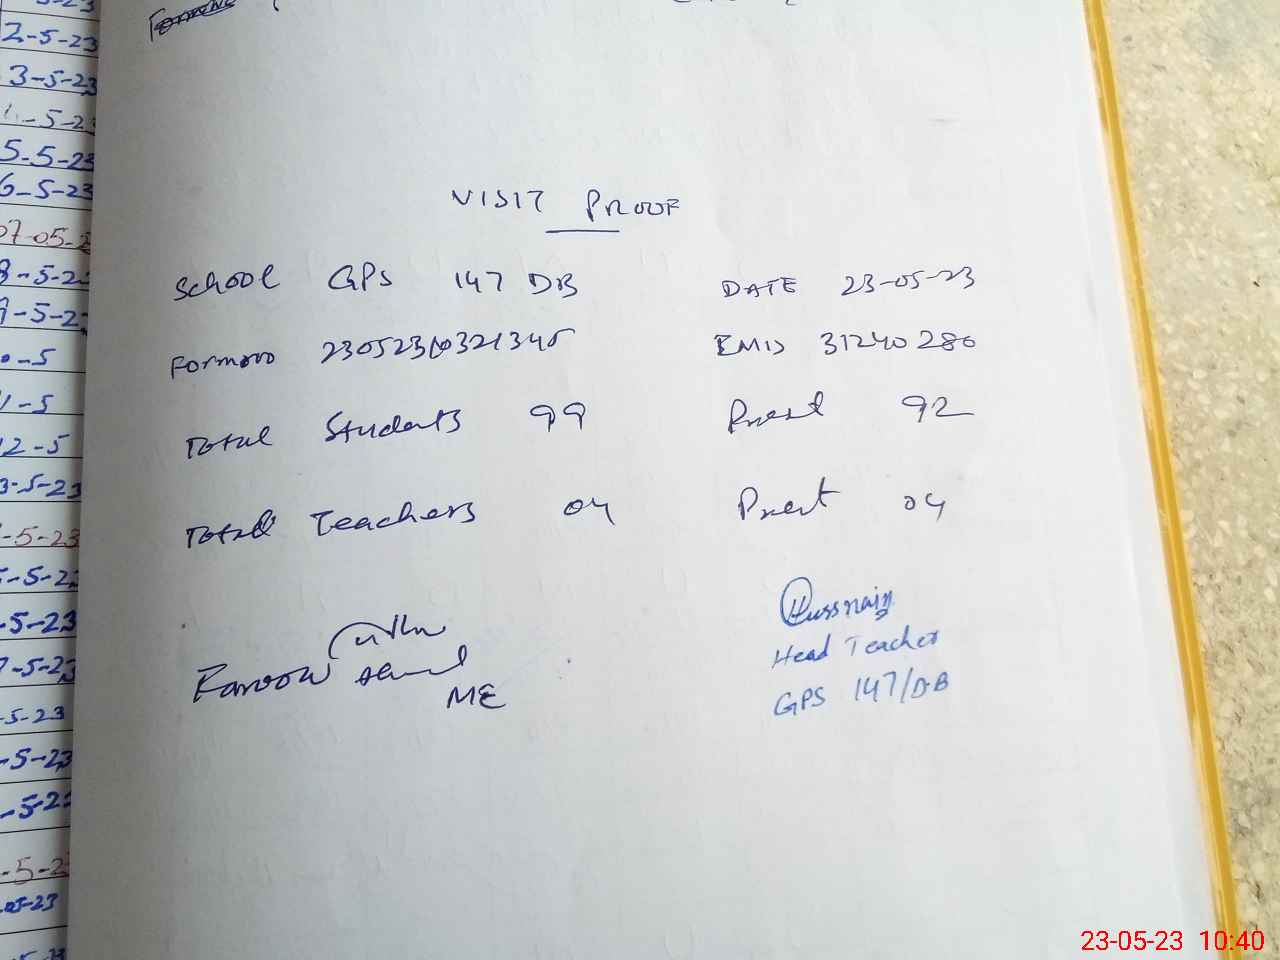 2-5-23
3-5-23
5-5-23
6-5-23
07-05-2
8-5-23
9-5-23
0-5
1-5
12-5
3-5-23
-5-23
-5-23
-5-23
7-5-23
-5-23
-5-23
-5-23
-5-23
-05-23
VISIT PROOF
School GPS 147 DB DATE 23-05-23
Formno EMIS 31240280
Total Students 99 Present 92
Total Teachers 04 Present 04
Farooq Ahmed
ME
Hussnain
Head Teacher
GPS 147/DB
23-05-23 10:40